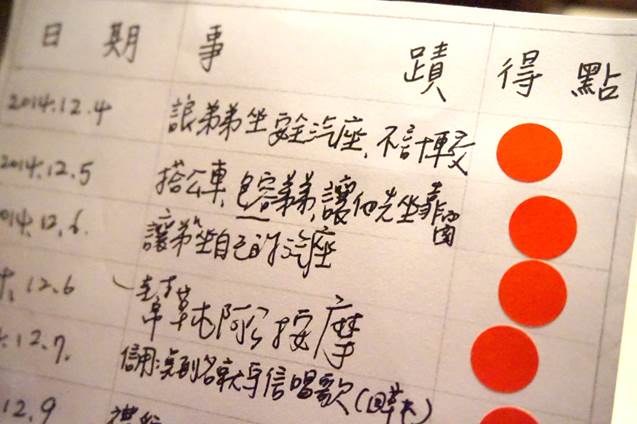 日期 事蹟 得點
2014.12.4 讓弟弟坐安全汽座、不計較
2014.12.5 搭公車,包容弟弟,讓他先坐靠窗
2014.12.6. 讓弟坐自己的汽座
12.6 幫草屯阿公按摩
12.7. 唱歌(回草屯)
12.9